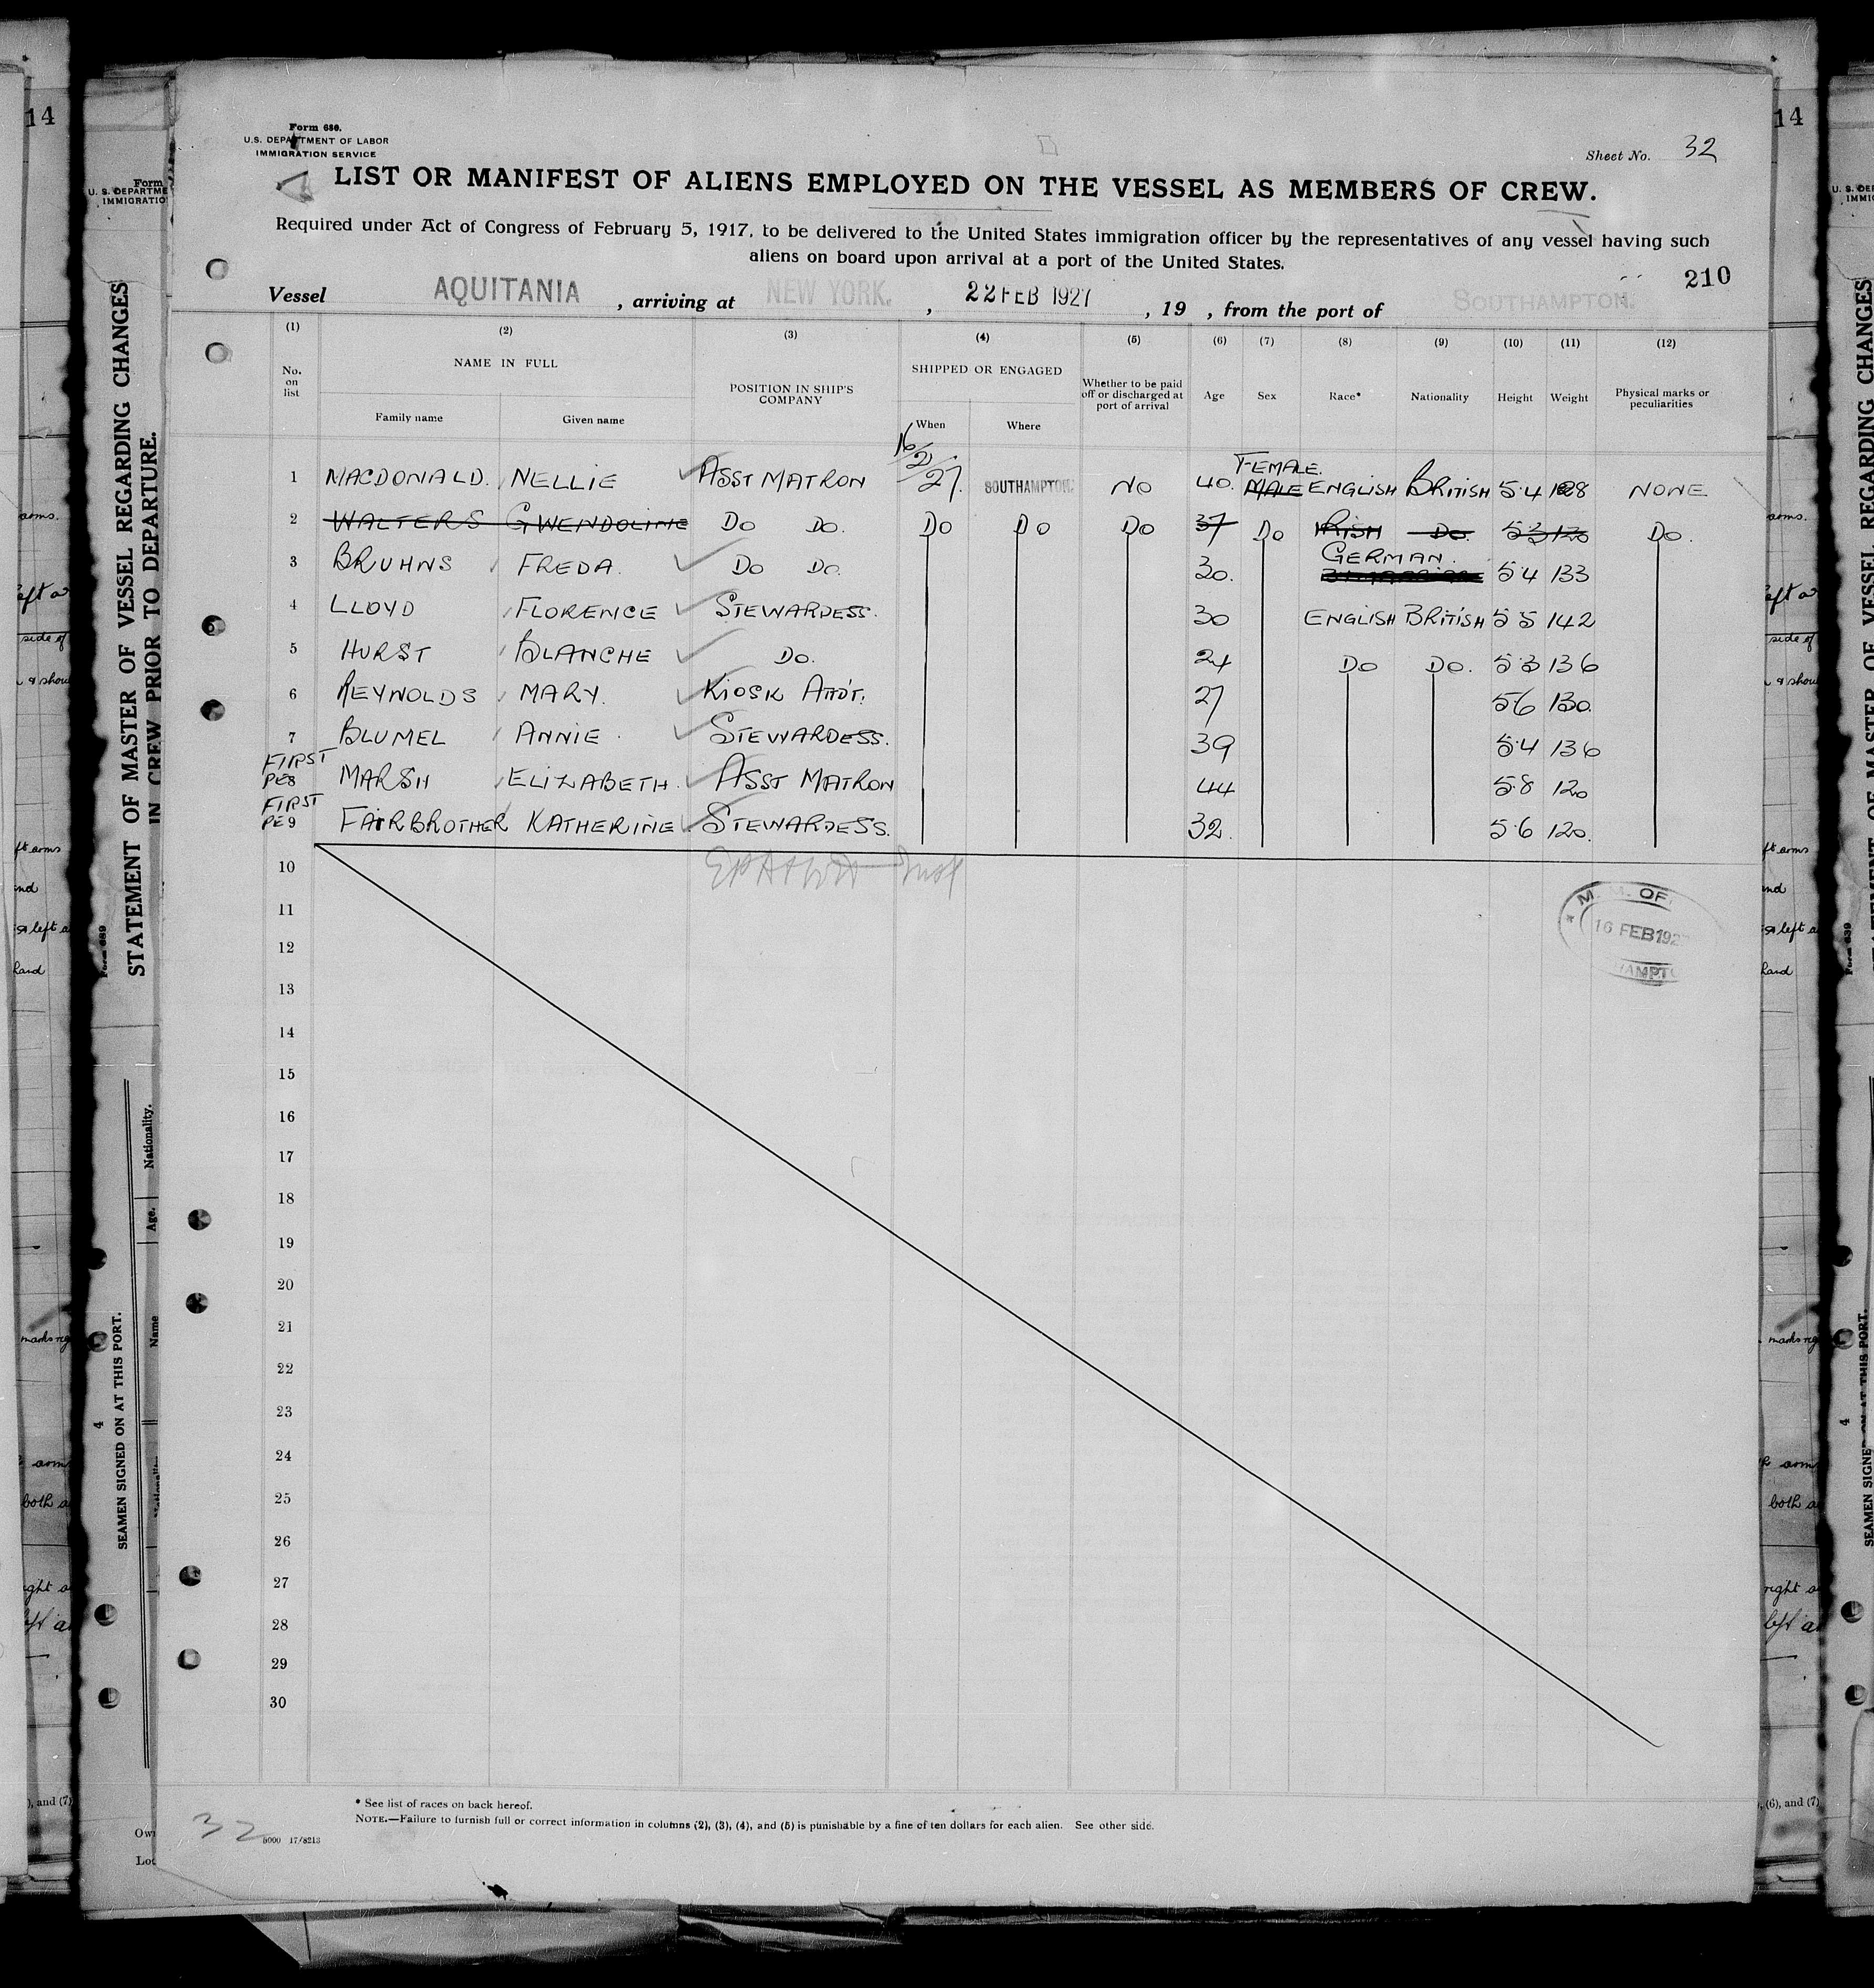 Form 686.
U.S. DEPARTMENT OF LABOR
IMMIGRATION SERVICE
Sheet No. 32
LIST OR MANIFEST OF ALIENS EMPLOYED ON THE VESSEL AS MEMBERS OF CREW.
Required under Act of Congress of February 5, 1917, to be delivered to the United States immigration officer by the representatives of any vessel having such
aliens on board upon arrival at a port of the United States.
210
Vessel AQUITANIA , arriving at NEW YORK. , 22 FEB 1927 , 19 , from the port of SOUTHAMPTON.
(1) (2) (3) (4) (5) (6) (7) (8) (9) (10) (11) (12)
No. on list NAME IN FULL POSITION IN SHIP'S COMPANY SHIPPED OR ENGAGED Whether to be paid off or discharged at port of arrival Age Sex Race* Nationality Height Weight Physical marks or peculiarities
Family name Given name When Where
1 MACDONALD. NELLIE ASST MATRON 16/2/27. SOUTHAMPTON. NO 40. FEMALE. MALE ENGLISH BRITISH 5·4 NONE
2 WALTERS GWENDOLINE DO DO. DO DO DO 37 DO IRISH DO. 5·3 120 DO.
3 BRUHNS FREDA. DO DO. 30. GERMAN. 5·4 133
4 LLOYD FLORENCE STEWARDESS. 30 ENGLISH BRITISH 5 5 142
5 HURST BLANCHE DO. 24 DO DO. 5·3 136
6 REYNOLDS MARY. KIOSK ATTD'T. 27 5 6 130.
7 BLUMEL ANNIE. STEWARDESS. 39 5·4 136
FIRST
PE 8 MARSH ELIZABETH. ASST MATRON 44 5·8 120
FIRST
PE 9 FAIRBROTHER KATHERINE STEWARDESS. 32. 5·6 120.
10
11
12
13
14
15
16
17
18
19
20
21
22
23
24
25
26
27
28
29
30
16 FEB 192
* See list of races on back hereof.
NOTE.—Failure to furnish full or correct information in columns (2), (3), (4), and (5) is punishable by a fine of ten dollars for each alien. See other side.
32
5000 17/8213
14
Form
U. S. DEPARTME
IMMIGRATIO
STATEMENT OF MASTER OF VESSEL REGARDING CHANGES
IN CREW PRIOR TO DEPARTURE.
Form 689
Nationality.
Age.
Name
4
SEAMEN SIGNED ON AT THIS PORT.
14